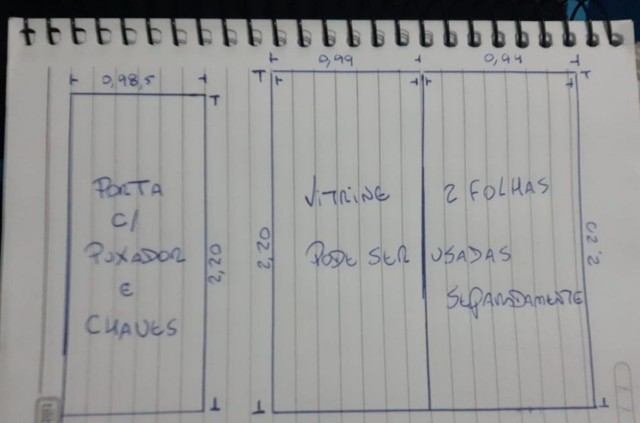 0,98,5
PORTA
C/
PUXADOR
E
CHAVES
2,20
0,99
0,94
2,20
VITRINE 2 FOLHAS
PODE SER USADAS
SEPARADAMENTE
2,20